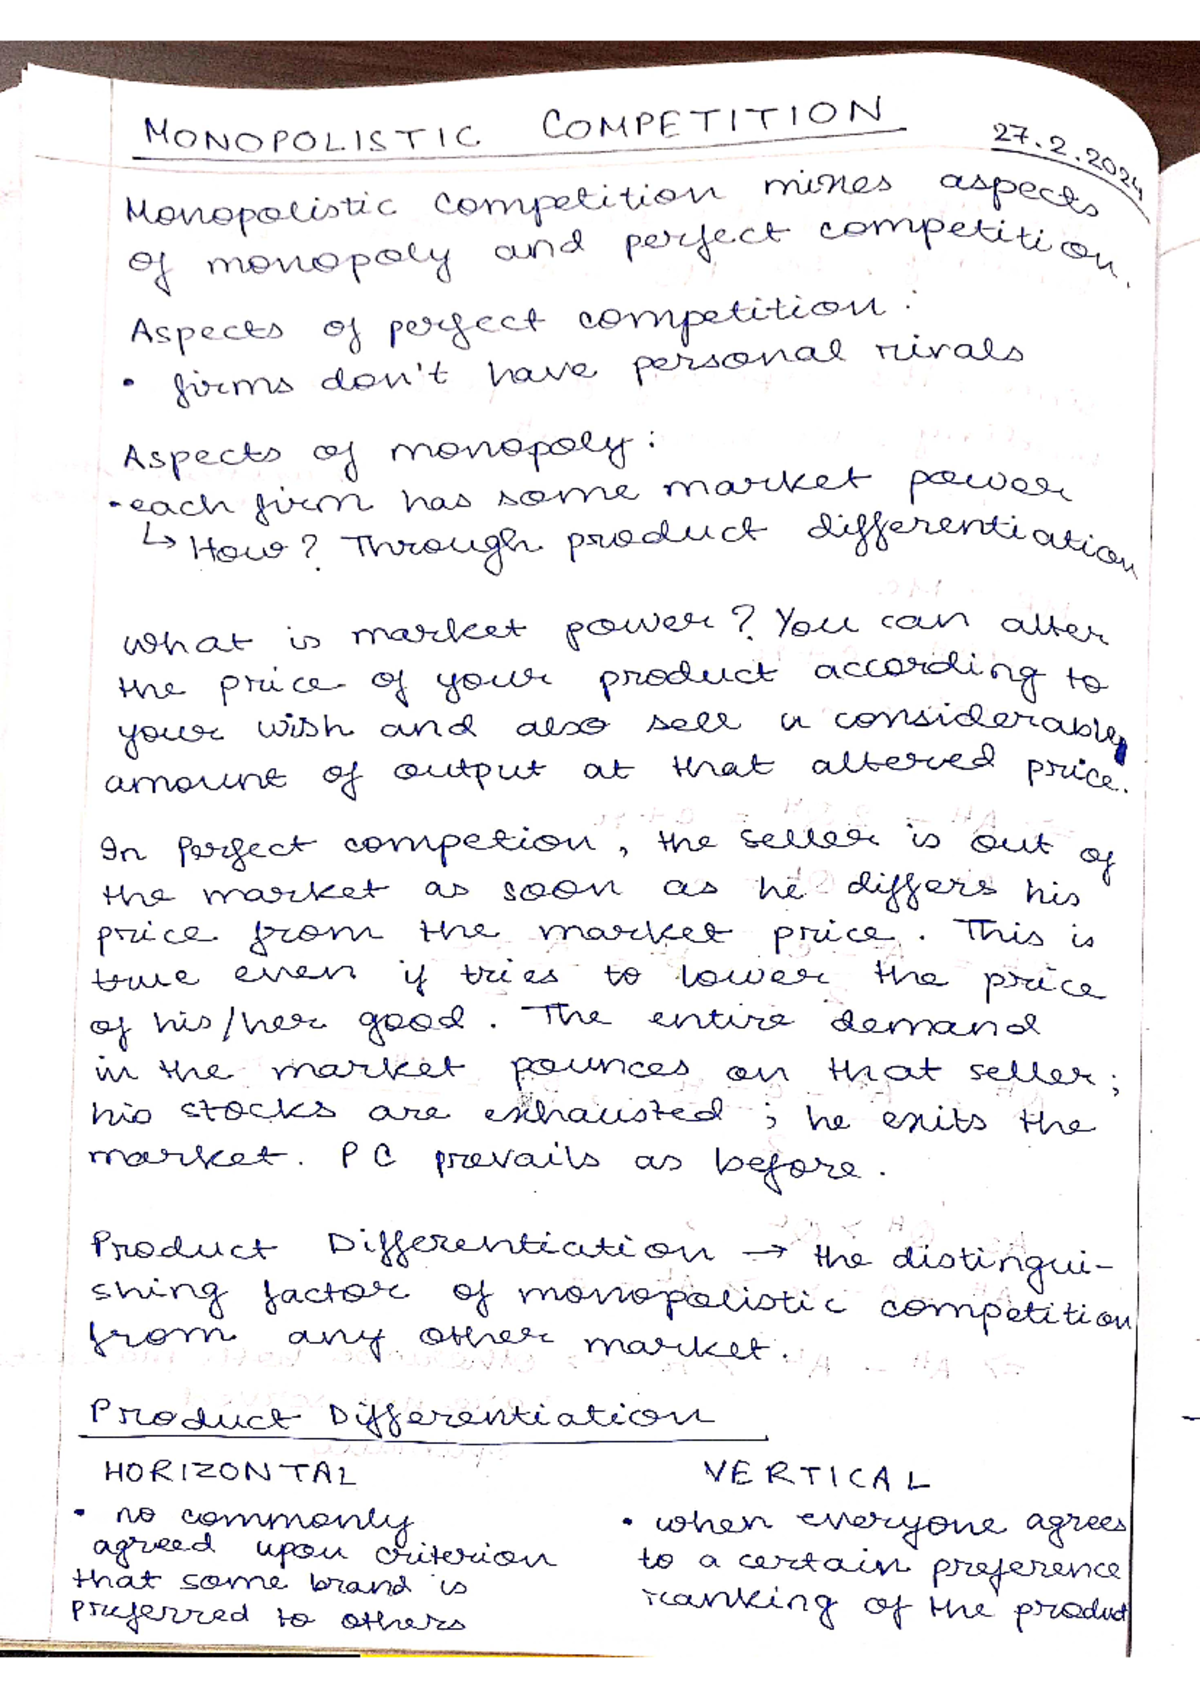 MONOPOLISTIC COMPETITION
27.2.2024
Monopolistic Competition mixes aspects
of monopoly and perfect competition.
Aspects of perfect competition:
• firms don't have personal rivals
Aspects of monopoly:
• each firm has some market power
↳ How? Through product differentiation
What is market power? You can alter
the price of your product according to
your wish and also sell a considerable
amount of output at that altered price.
In Perfect competion, the seller is out of
the market as soon as he differs his
price from the market price. This is
true even if tries to lower the price
of his/her good. The entire demand
in the market pounces on that seller;
his stocks are exhausted; he exits the
market. PC prevails as before.
Product Differentiation → the distingui-
shing factor of monopolistic competition
from any other market.
Product Differentiation
HORIZONTAL
• no commonly
agreed upon criterion
that some brand is
preferred to others
VERTICAL
• when everyone agrees
to a certain preference
ranking of the product